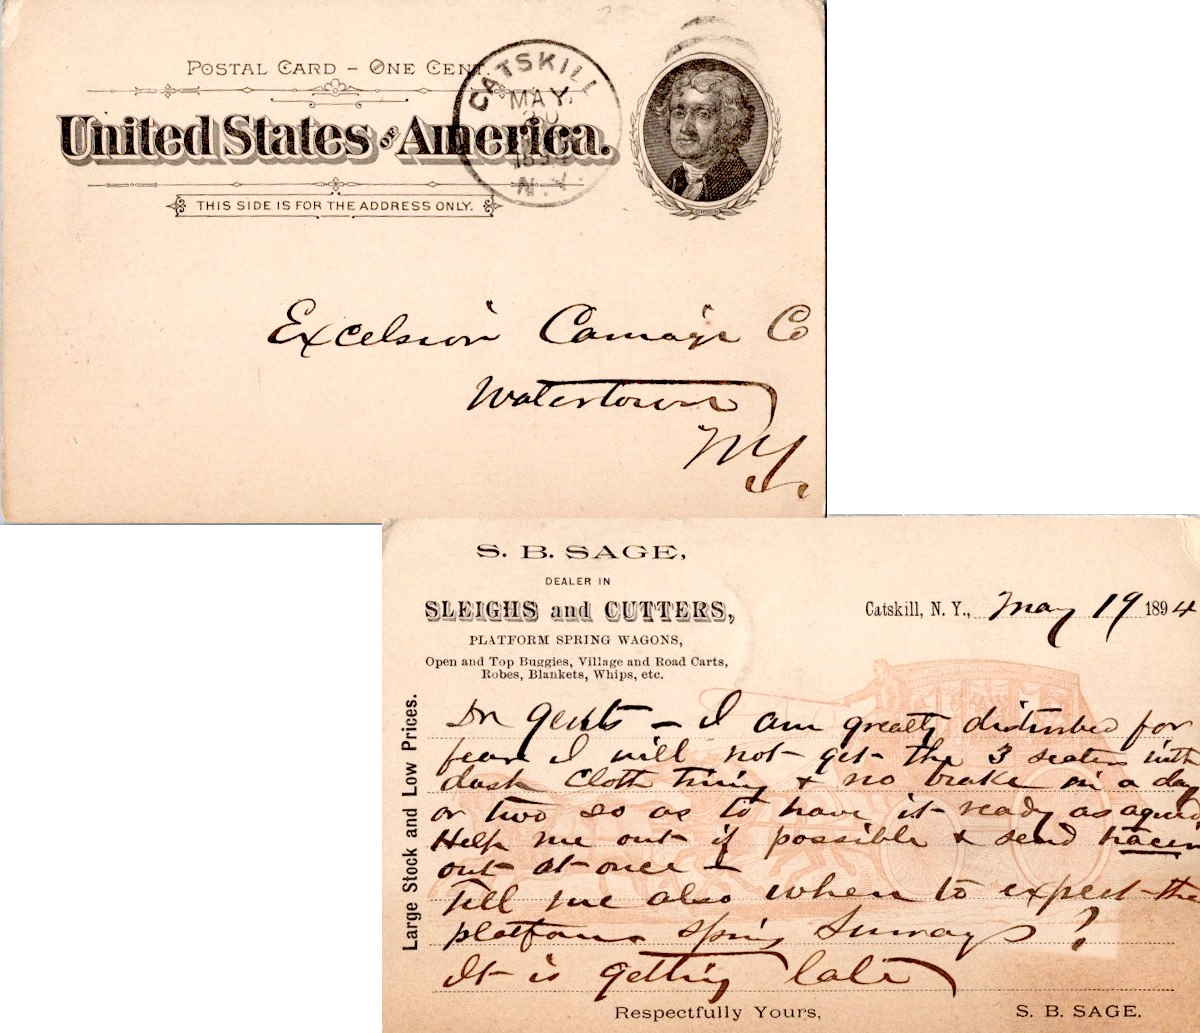 POSTAL CARD – ONE CENT.
United States OF America.
THIS SIDE IS FOR THE ADDRESS ONLY.
CATSKILL
MAY
N.Y.
Excelsior Carriage Co
Watertown
N.Y.
S. B. SAGE,
DEALER IN
SLEIGHS and CUTTERS,
PLATFORM SPRING WAGONS,
Open and Top Buggies, Village and Road Carts,
Robes, Blankets, Whips, etc.
Large Stock and Low Prices.
Catskill, N. Y., May 19 1894
Dr Gents – I am greatly disturbed for
fear I will not get the 3 seater with
dark cloth & no brake in a day
or two so as to have it ready as agreed
Help me out if possible & send tracer
out at once –
Tell me also when to expect the
platform spring Surreys?
It is getting late
Respectfully Yours,
S. B. SAGE.